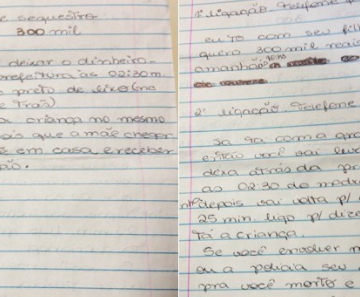 e sequestro
300 mil
deixar o dinheiro-
prefeitura às 02:30m.
preto de lixo (no
e Trás)
a criança no mesmo
ois que a mãe chegar
e em casa e receber
ão.
1ª Ligação Telefone
eu to com seu fil
quero 300 mil reais
amanhã
2ª Ligação Telefone
Ja ta com a
você vai lev
deixa atrás da pr
as 02:30 da madr
depois vai volta p/ c
25 min. ligo p/ dize
tá a criança.
Se você envolver m
ou a policia seu
pra você morto e